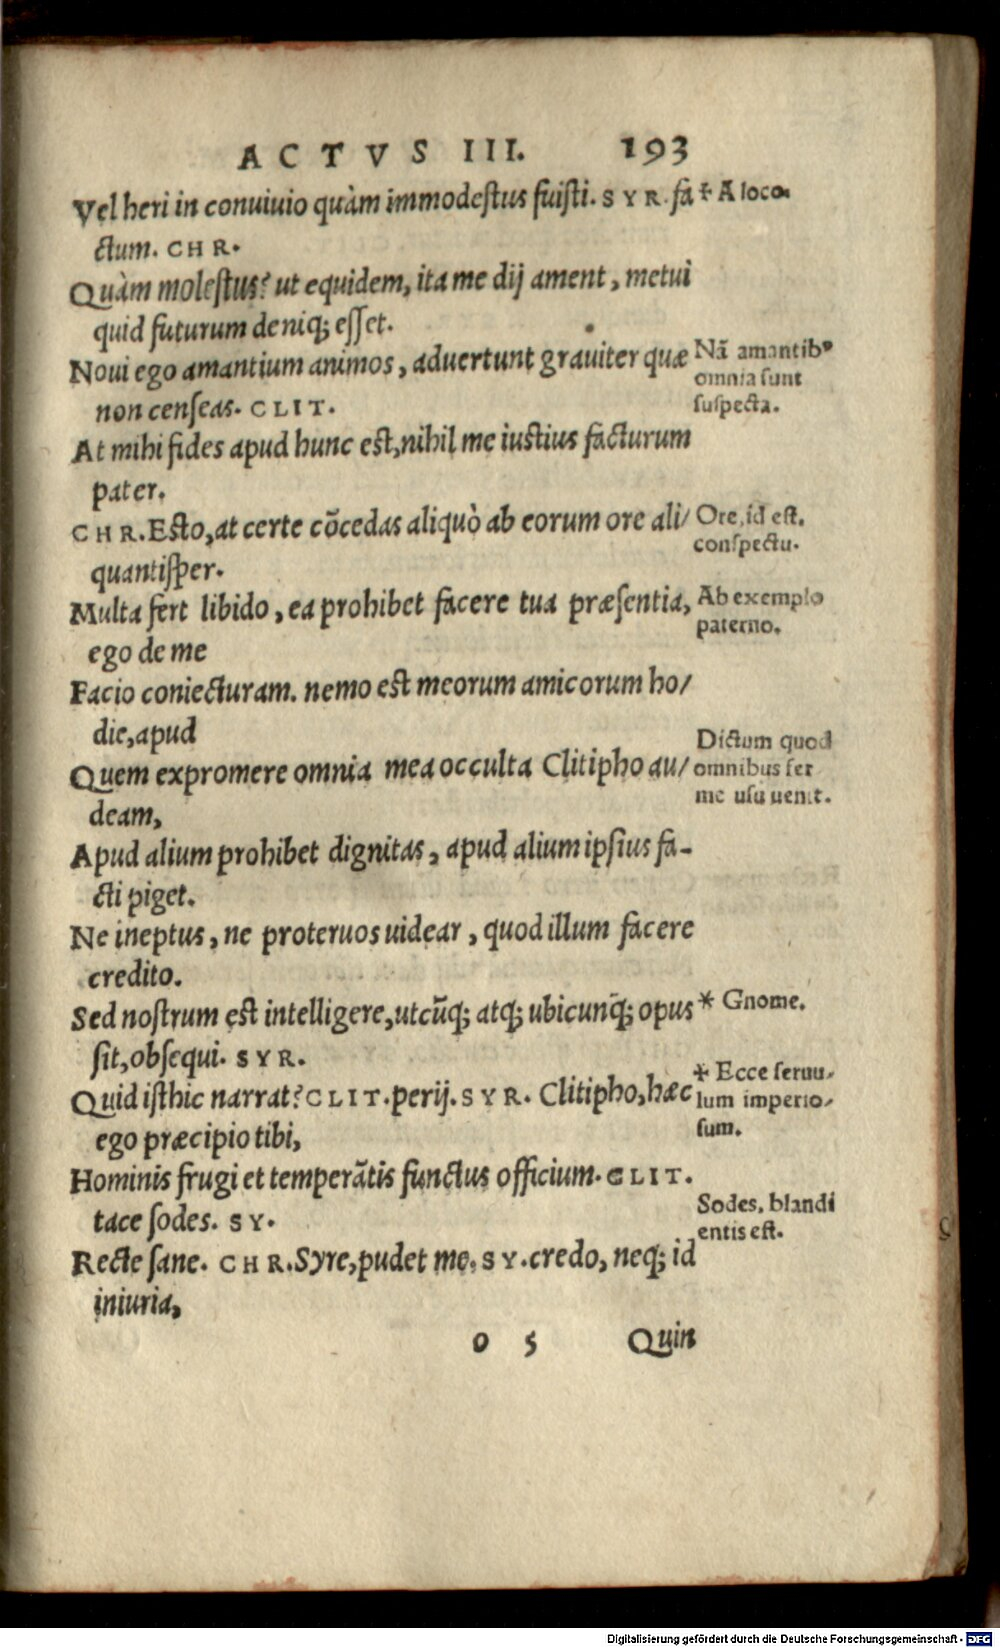 ACTVS III. 193
Vel heri in conuiuio quàm immodestus fuisti. SYR. fa
✢ A loco.
ctum. CHR.
Quàm molestus? ut equidem, ita me dij ament, metui
quid futurum deniq; esset.
Noui ego amantium animos, aduertunt grauiter quæ
non censeas. CLIT.
Nã amantibꝰ
omnia sunt
suspecta.
At mihi fides apud hunc est, nihil me iustius facturum
pater.
CHR. Esto, at certe cõcedas aliquò ab eorum ore ali/
quantisper.
Ore, id est.
conspectu.
Multa fert libido, ea prohibet facere tua præsentia,
ego de me
Ab exemplo
paterno.
Facio coniecturam. nemo est meorum amicorum ho/
die, apud
Quem expromere omnia mea occulta Clitipho au/
deam,
Dictum quod
omnibus fer
me usu uenit.
Apud alium prohibet dignitas, apud alium ipsius fa-
cti piget.
Ne ineptus, ne proteruos uidear, quod illum facere
credito.
Sed nostrum est intelligere, utcũq; atq; ubicunq̃; opus
sit, obsequi. SYR.
* Gnome.
Quid isthic narrat? CLIT. perij. SYR. Clitipho, hæc
ego præcipio tibi,
✢ Ecce seruu-
lum imperio/
sum.
Hominis frugi et temperãtis functus officium. CLIT.
tace sodes. SY.
Sodes, blandi
entis est.
Recte sane. CHR. Syre, pudet me. SY. credo, neq; id
iniuria,
o 5 Quin
Digitalisierung gefördert durch die Deutsche Forschungsgemeinschaft - DFG